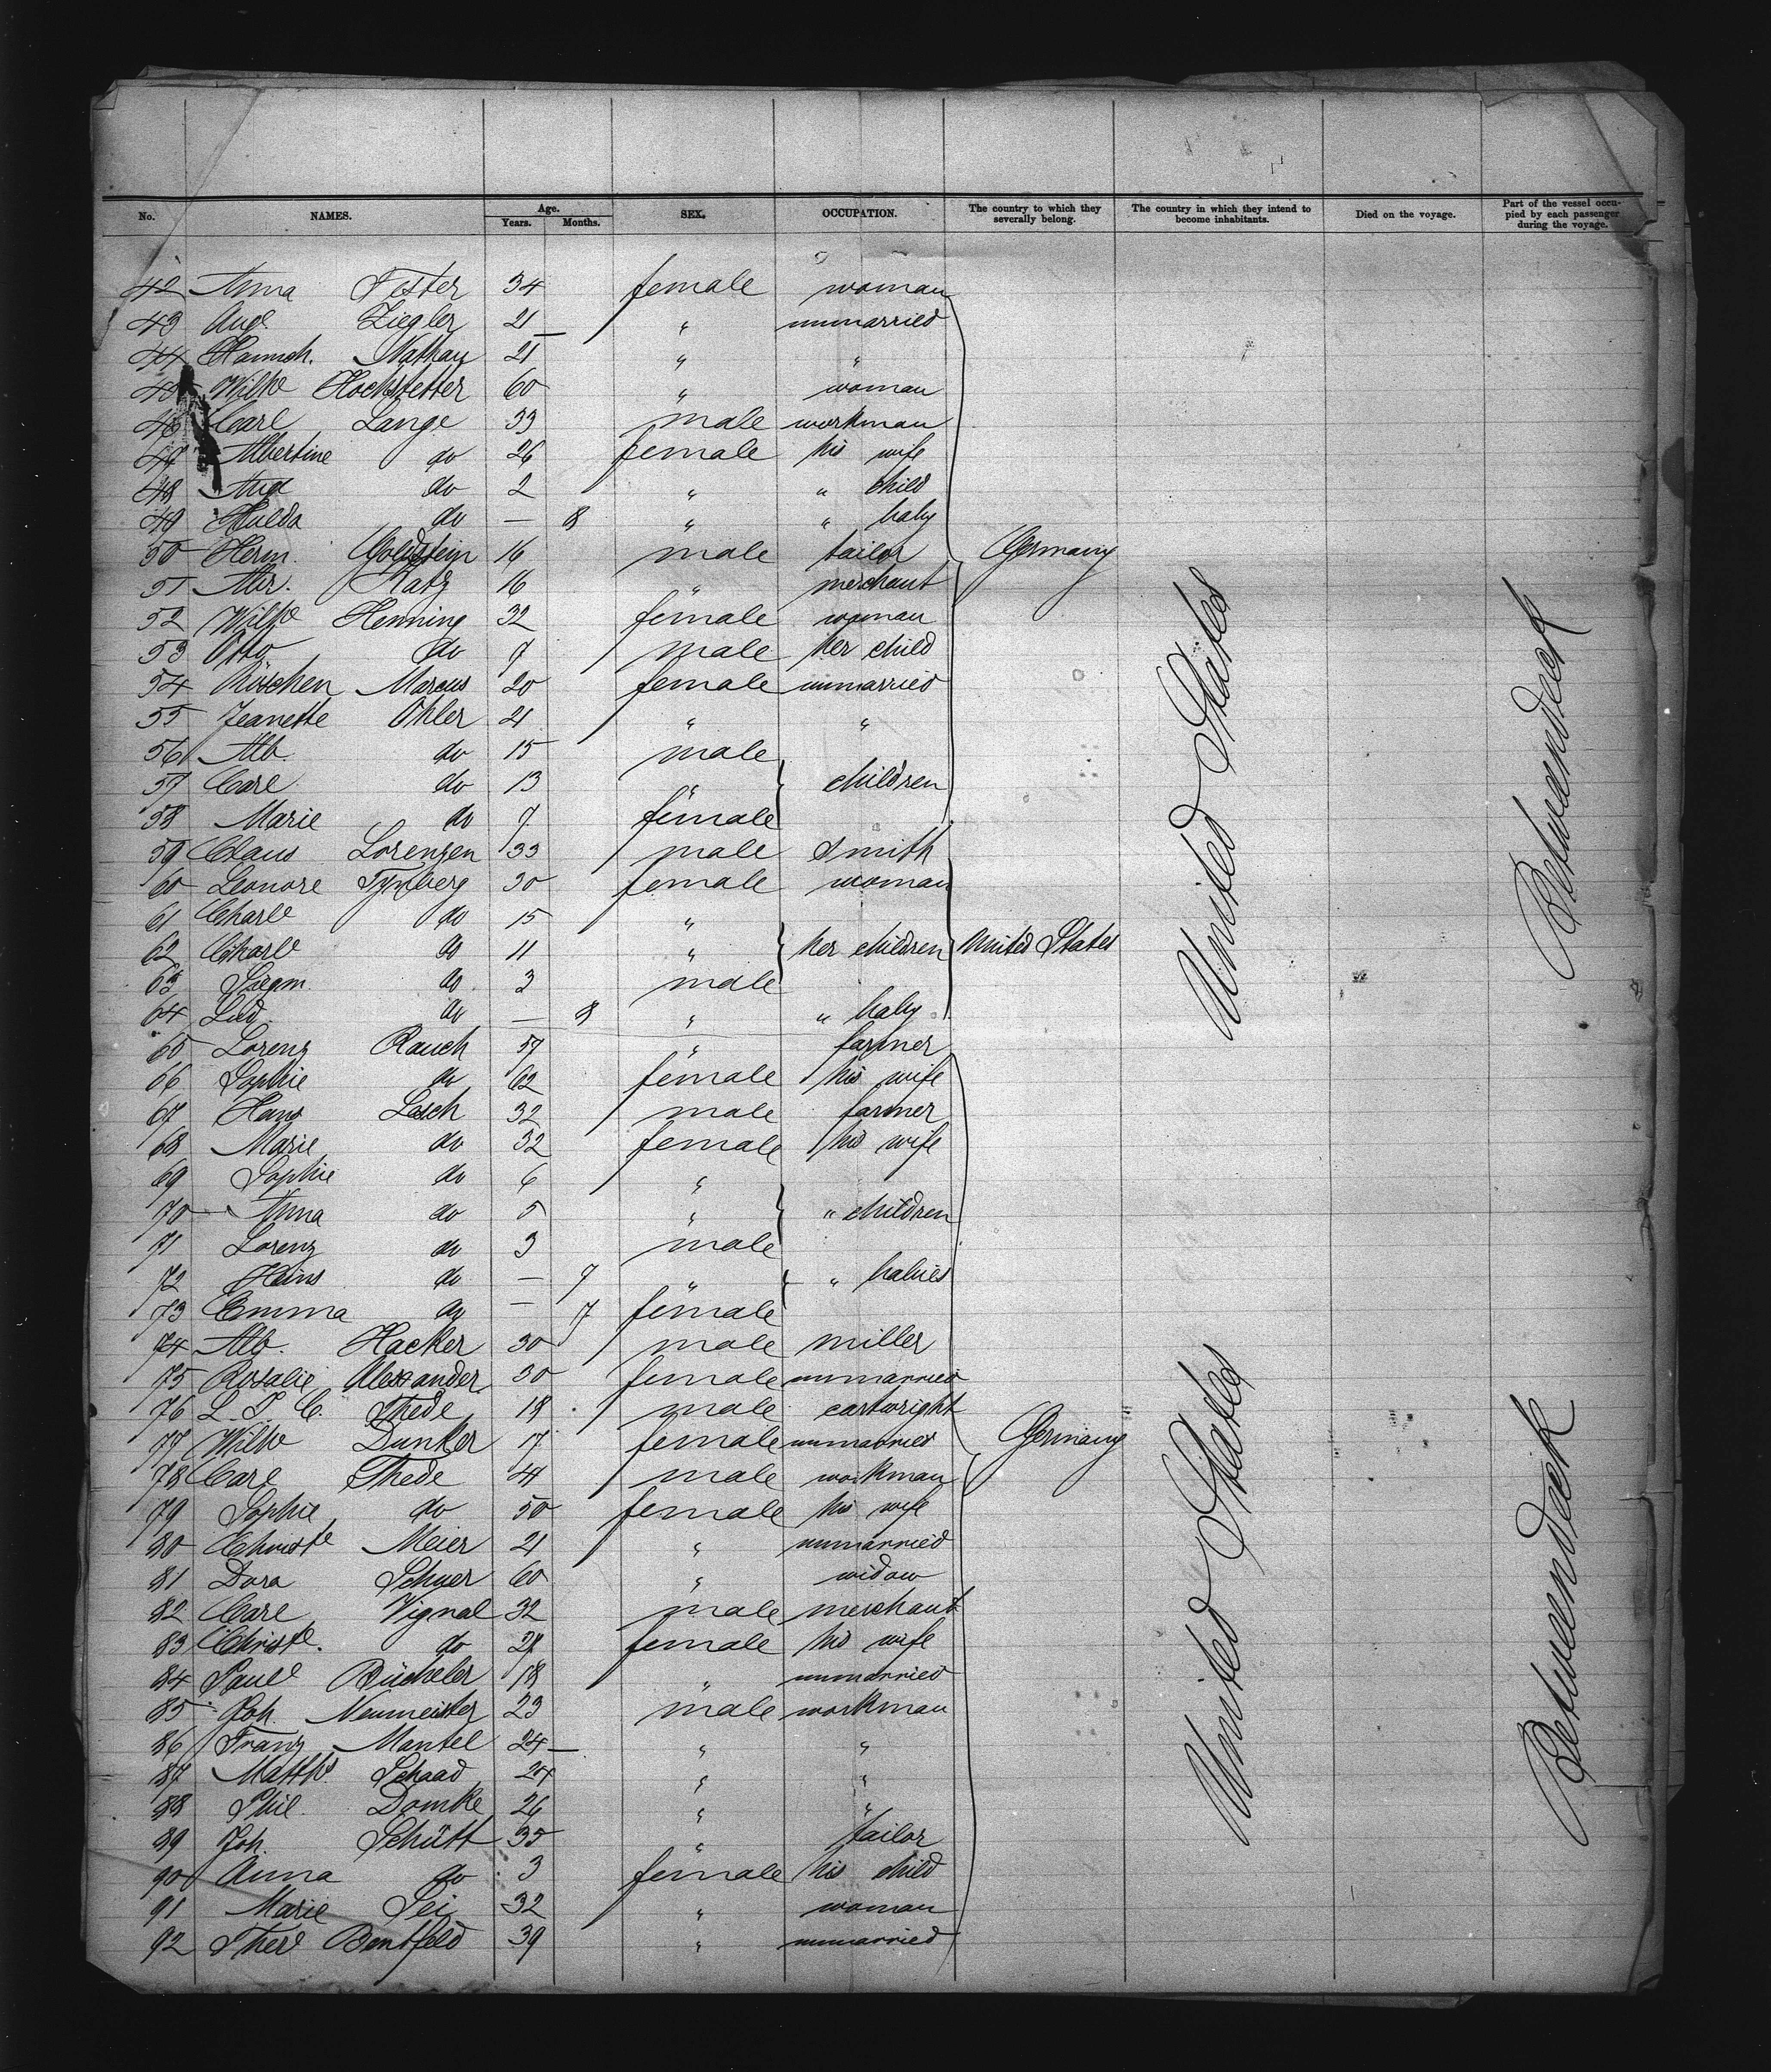 No. NAMES. Age. Years. Months. SEX. OCCUPATION. The country to which they severally belong. The country in which they intend to become inhabitants. Died on the voyage. Part of the vessel occupied by each passenger during the voyage.
42 Anna Fester 34 female woman
43 Aug. Ziegler 21 " unmarried
44 Hannch. Nathan 21 " "
45 Wilhe Hochstetter 60 " woman
46 Carl Lange 33 male workman
47 Albertine do 26 female his wife
48 Aug do 2 " " child
49 Hulda do — 8 " " baby
50 Herm. Goldstein 16 male tailor Germany
51 Abr. Katz 16 " merchant
52 Wilhe Henning 32 female woman
53 Otto do 7 male her child
54 Röschen Marcus 20 female unmarried
55 Jeanette Ohler 21 " "
56 Alb. do 15 male
57 Carl do 13 " children
58 Marie do 7 female
59 Claus Lorenzen 33 male smith
60 Leonore 30 female woman
61 Charle do 15 "
62 Charle do 11 " her children United States
63 Siegm. do 3 male
64 Lud. do — 8 " " baby
65 Lorenz Rauch 57 " farmer
66 Sophie do 62 female his wife
67 Hans Lesch 32 male farmer
68 Marie do 32 female his wife
69 Sophie do 6 "
70 Anna do 5 " " children
71 Lorenz do 3 male
72 Heins do — 7 " " babies
73 Emma do — 7 female
74 Alb. Hacker 30 male miller
75 Rosalie Alexander 30 female unmarried
76 L. P. C. Thede 18 male cartwright
77 Wilhe Dunker 17 female unmarried Germany
78 Carl Thede 41 male workman
79 Sophie do 50 female his wife
80 Christe Meier 21 " unmarried
81 Dora Schuer 60 " widow
82 Carl Vignal 32 male merchant
83 Christe. do 28 female his wife
84 Paule Bücheler 18 " unmarried
85 Joh. Neumeister 23 male workman
86 Franz Mantel 24 " "
87 Matths Schaad 24 " "
88 Phil. Domke 26 " "
89 Joh. Schütt 35 " tailor
90 Anna do 3 female his child
91 Marie Sei 32 " woman
92 There Bentfeld 39 " unmarried
United States
Betweendeck
United States
Betweendeck